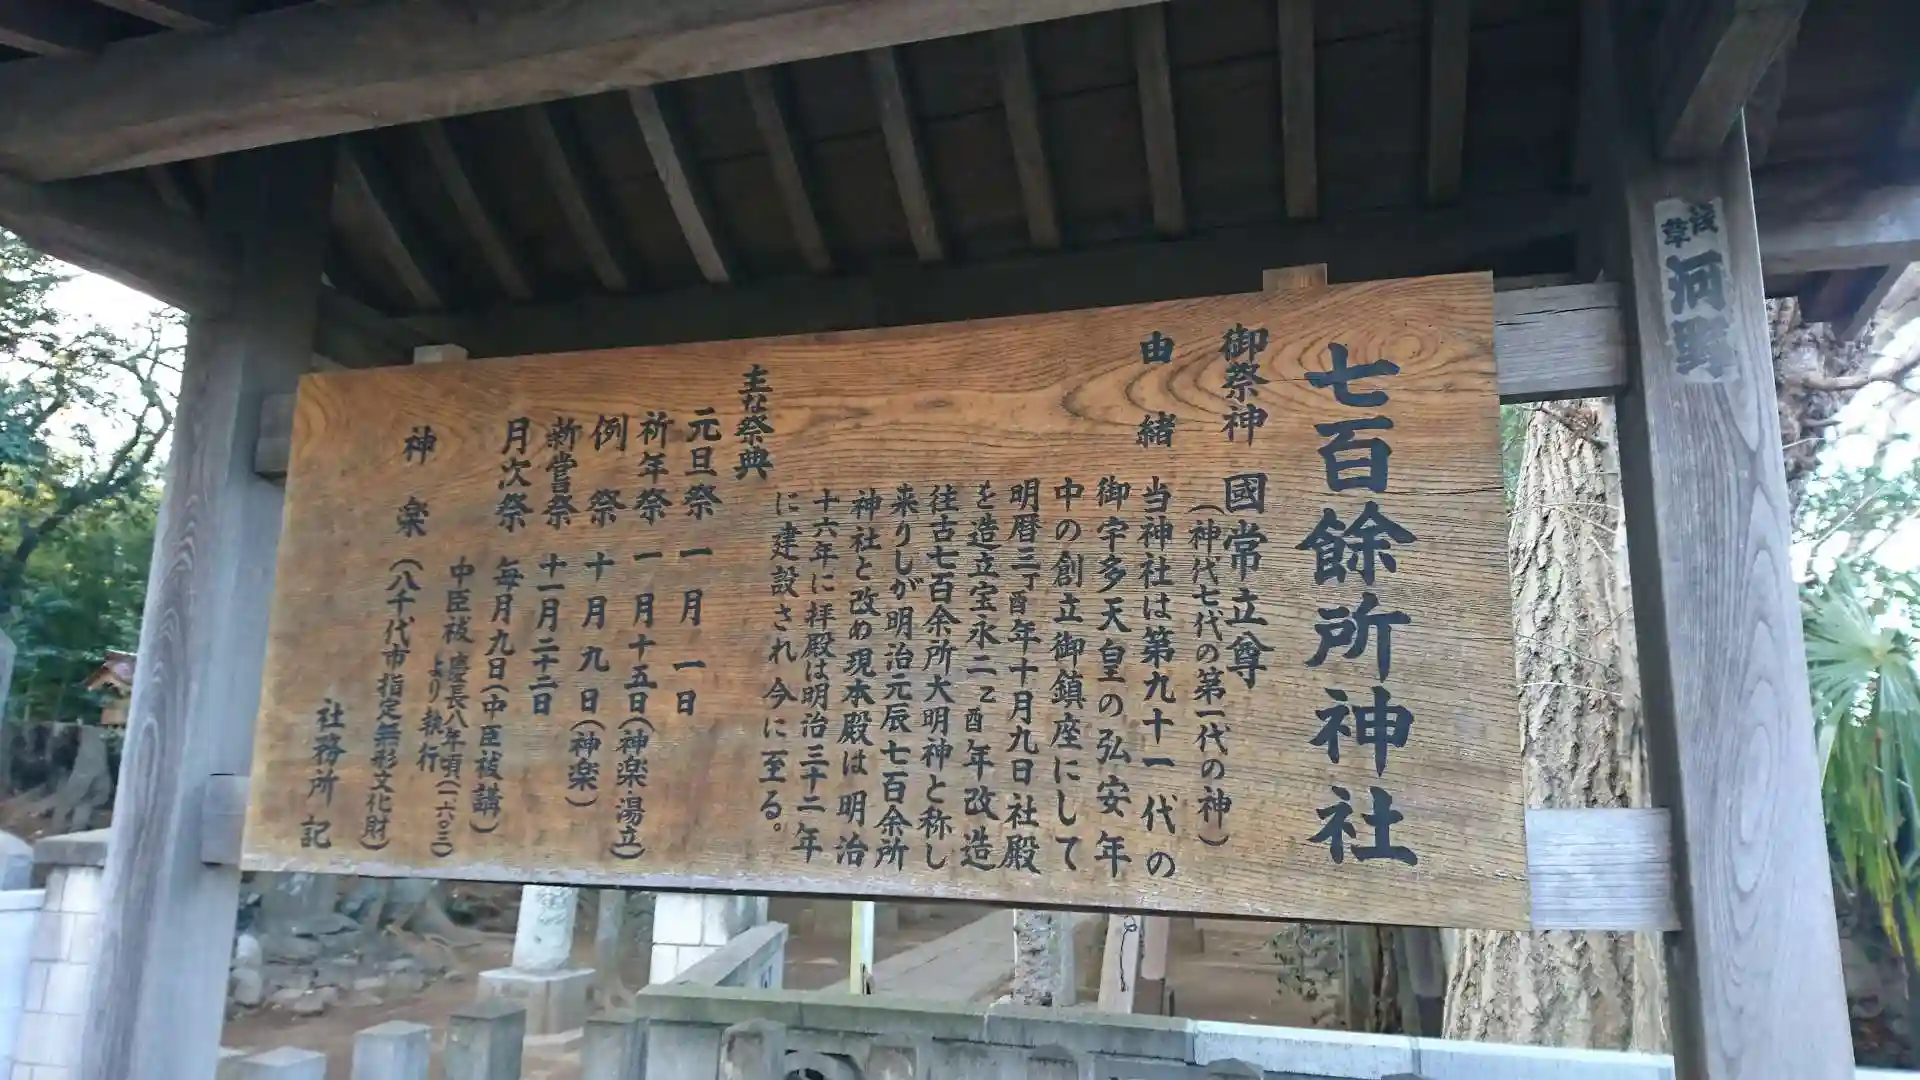 七百餘所神社
御祭神 國常立尊
(神代七代の第一代の神)
由緒 当神社は第九十一代の
御宇多天皇の弘安年
中の創立御鎮座にして
明暦三丁酉年十月九日社殿
を造立宝永二乙酉年改造
往古七百余所大明神と称し
来りしが明治元辰七百余所
神社と改め現本殿は明治
十六年に拝殿は明治三十二年
に建設され今に至る。
主な祭典
元旦祭 一月一日
祈年祭 一月十五日(神楽湯立)
例祭 十月九日(神楽)
新嘗祭 十一月二十二日
月次祭 毎月九日(中臣祓講)
中臣祓 慶長八年頃(一六〇三)
より執行
神楽(八千代市指定無形文化財)
社務所記
浅草
河野